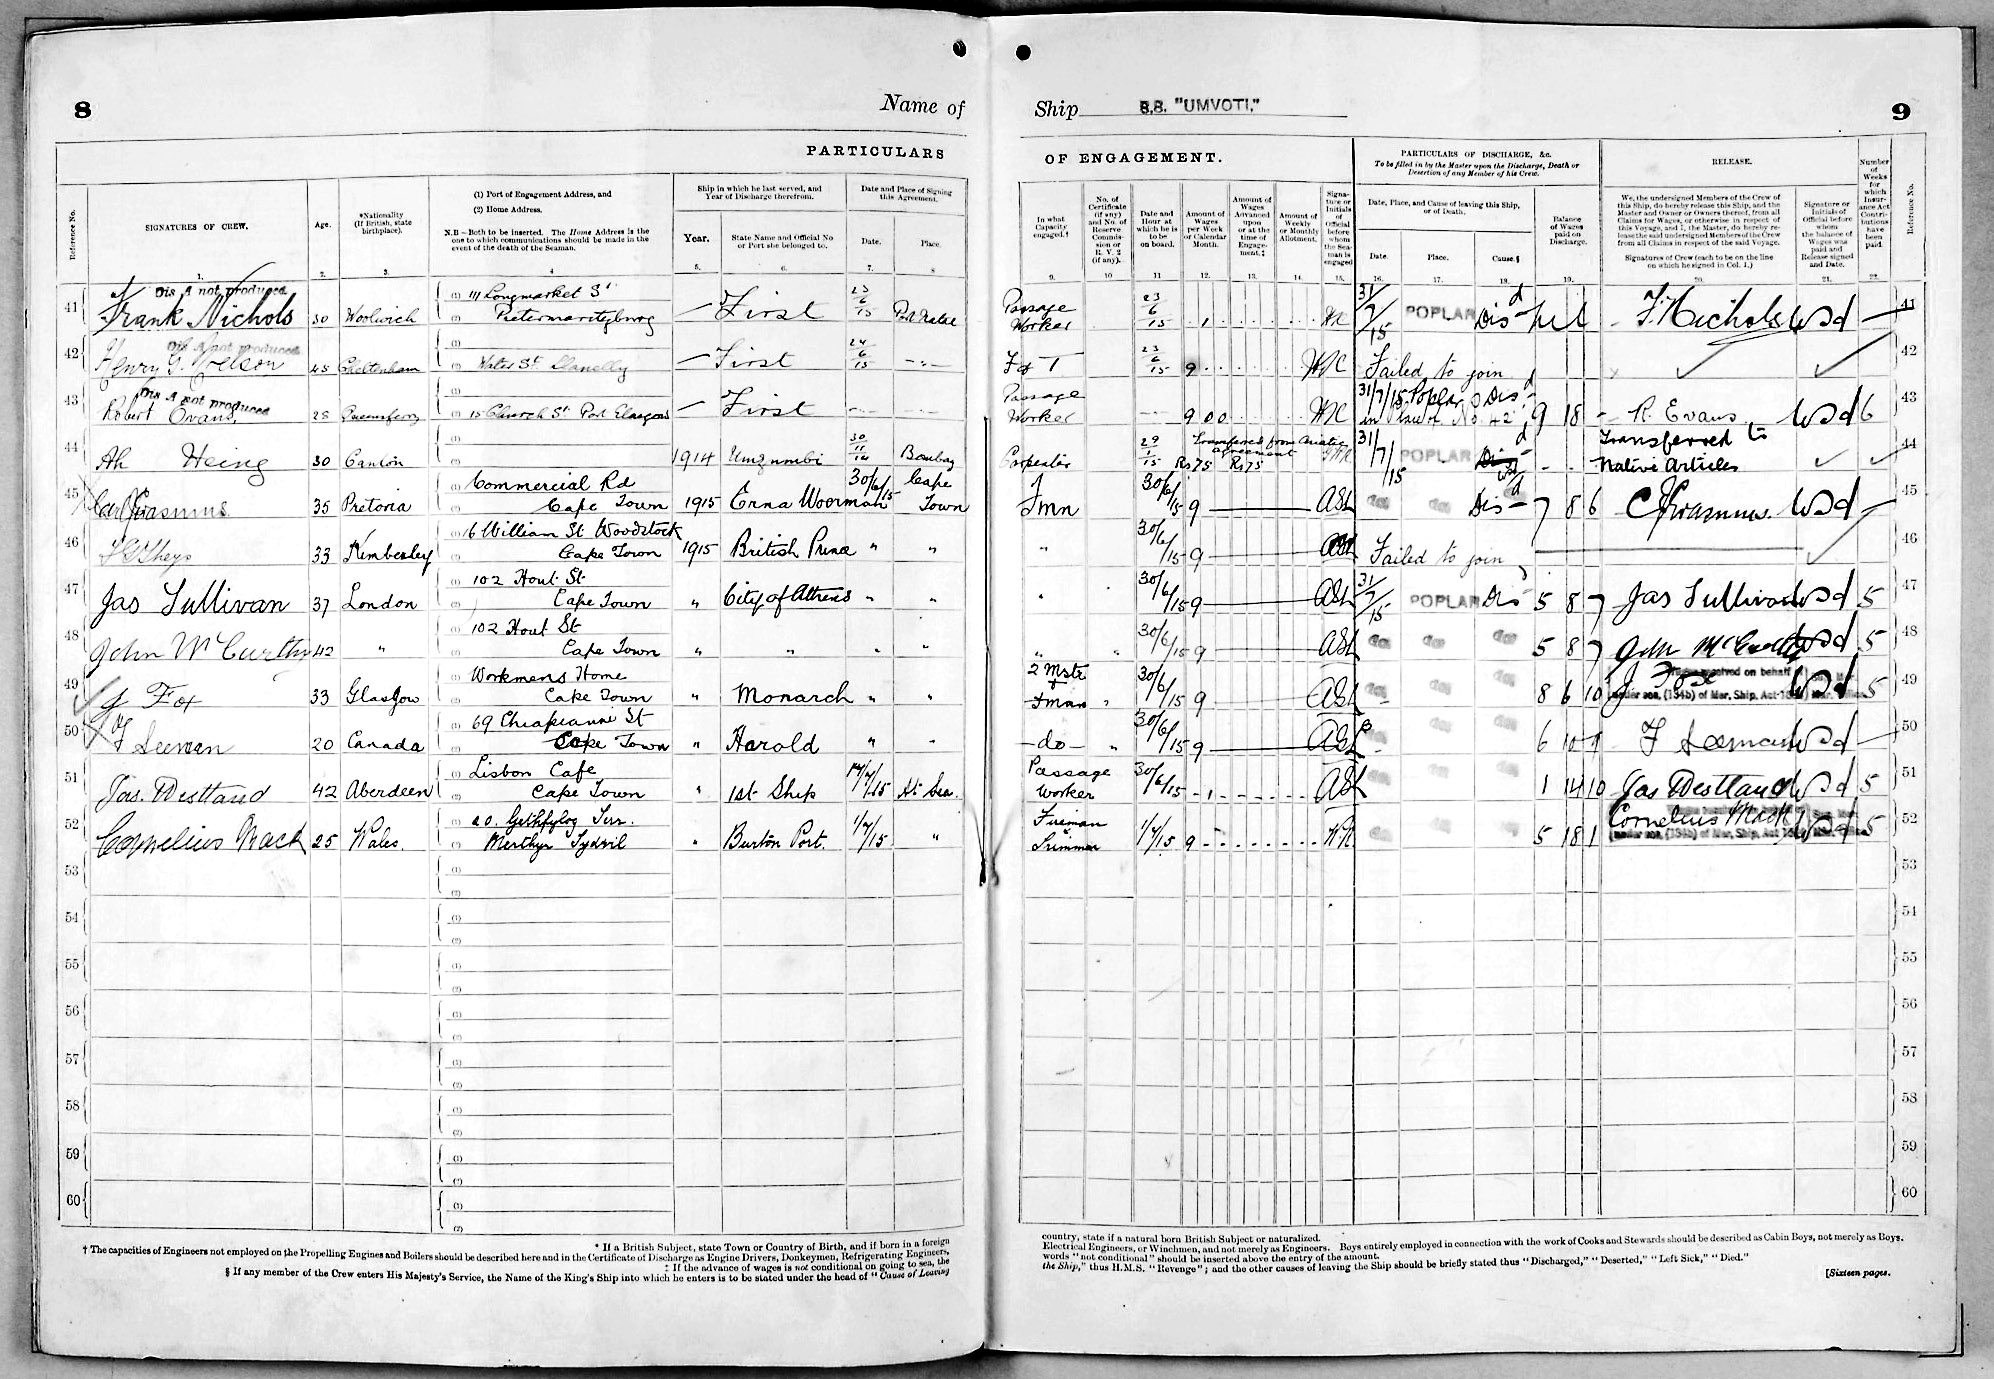 8
Name of
PARTICULARS
Reference No.
SIGNATURES OF CREW.
Age.
*Nationality
(If British, state
birthplace).
(1) Port of Engagement Address, and
(2) Home Address.
N.B.—Both to be inserted. The Home Address is the
one to which communications should be made in the
event of the death of the Seaman.
Ship in which he last served, and
Year of Discharge therefrom.
Year.
State Name and Official No
or Port she belonged to.
Date and Place of Signing
this Agreement.
Date.
Place.
1. 2. 3. 4 5. 6. 7. 8
Dis A not produced
41 Frank Nichols 30 Woolwich (1) 111 Longmarket St (2) Pietermaritzburg — First 23/6/15 Port Natal
Dis A not produced
42 Henry G. Nelson 45 Cheltenham (1) (2) Water St Llanelly — First 24/6/15 - " -
Dis A not produced
43 Robert Evans. 28 Queensferry (1) (2) 15 Church St Port Glasgow — First
44 Ah Heing 30 Canton (1) (2) 1914 Umzumbi 30/11/14 Bombay
45 35 Pretoria Commercial Rd Cape Town 1915 Erna Woerman 30/6/15 Cape Town
46 33 Kimberley 16 William St Woodstock Cape Town 1915 British Prince " "
47 Jas Sullivan 37 London (1) 102 Hout St (2) Cape Town " City of Athens " "
48 John McCurthy 42 " (1) 102 Hout St (2) Cape Town " " " "
49 J Fox 33 Glasgow (1) Workmens Home (2) Cape Town " Monarch " "
50 F Seeman 20 Canada (1) 69 St (2) Cape Town " Harold " "
51 Jas. Westland 42 Aberdeen (1) Lisbon Cafe (2) Cape Town " 1st Ship 1/7/15 At Sea.
52 Cornelius Mack 25 Wales. (1) 20. Terr. (2) Merthyr Tydvil " Burton Port. 1/7/15 "
53 (1) (2)
54 (1) (2)
55 (1) (2)
56 (1) (2)
57 (1) (2)
58 (1) (2)
59 (1) (2)
60 (1) (2)
* If a British Subject, state Town or Country of Birth, and if born in a foreign
† The capacities of Engineers not employed on the Propelling Engines and Boilers should be described here and in the Certificate of Discharge as Engine Drivers, Donkeymen, Refrigerating Engineers,
‡ If the advance of wages is not conditional on going to sea, the
§ If any member of the Crew enters His Majesty's Service, the Name of the King's Ship into which he enters is to be stated under the head of "Cause of Leaving
Ship S.S. "UMVOTI."
9
OF ENGAGEMENT.
In what
Capacity
engaged.†
No. of
Certificate
(if any)
and No. of
Reserve
Commis-
sion or
R. V. 2
(if any).
Date and
Hour at
which he is
to be
on board.
Amount of
Wages
per Week
or Calendar
Month.
Amount of
Wages
Advanced
upon
or at the
time of
Engage-
ment.‡
Amount of
Weekly
or Monthly
Allotment.
Signa-
ture or
Initials
of
Official
before
whom
the Sea-
man is
engaged
PARTICULARS OF DISCHARGE, &c.
To be filled in by the Master upon the Discharge, Death or
Desertion of any Member of his Crew.
Date, Place, and Cause of leaving this Ship,
or of Death.
Date.
Place.
Cause.§
Balance
of Wages
paid on
Discharge.
RELEASE.
We, the undersigned Members of the Crew of
this Ship, do hereby release this Ship, and the
Master and Owner or Owners thereof, from all
Claims for Wages, or otherwise in respect of
this Voyage, and I, the Master, do hereby re-
lease the said undersigned Members of the Crew
from all Claims in respect of the said Voyage.
Signatures of Crew (each to be on the line
on which he signed in Col. 1.)
Signature or
Initials of
Official before
whom
the balance of
Wages was
paid and
Release signed
and Date.
Number
of
Weeks
for
which
Insur-
ance Act
Contri-
butions
have
been
paid.
Reference No.
9. 10 11 12. 13. 14. 15. 16. 17. 18. 19. 20. 21. 22.
Passage Worker 23/6/15 1 31/7/15 POPLAR Disd Nil F. Nichols WSd 41
F & T 23/6/15 9 Failed to join 42
Passage Worker 9 0 0 31/7/15 Poplar Disd 9 18 - R. Evans WSd 6 43
Carpenter 29/1/15 Rs 75 Rs 75 Transferred from Asiatic agreement 31/7/15 POPLAR Disd - - Transferred to Native Articles 44
Fmn 30/6/15 9 ASL Disd 7 8 6 WSd 45
" 30/6/15 9 ASL Failed to join 46
" 30/6/15 9 ASL 31/7/15 POPLAR Dis 5 8 7 Jas Sullivan WSd 5 47
" " 30/6/15 9 ASL 5 8 7 John McCurthy WSd 5 48
2 Mste & Fman " 30/6/15 9 ASL 8 6 10 J Fox received on behalf under sec. (154b) of Mer. Ship. Act WSd 5 49
— do — " 30/6/15 9 ASL 6 10 9 F Seeman WSd — 50
Passage Worker 30/6/15 - 1 ASL 1 14 10 Jas Westland WSd 5 51
Fireman & Trimmer 1/7/15 9 5 18 1 Cornelius Mack under sec. (154b) of Mer. Ship. Act WSd 5 52
53
54
55
56
57
58
59
60
country, state if a natural born British Subject or naturalized.
Electrical Engineers, or Winchmen, and not merely as Engineers. Boys entirely employed in connection with the work of Cooks and Stewards should be described as Cabin Boys, not merely as Boys.
words "not conditional" should be inserted above the entry of the amount.
the Ship," thus H.M.S. "Revenge"; and the other causes of leaving the Ship should be briefly stated thus "Discharged," "Deserted," "Left Sick," "Died."
[Sixteen pages.